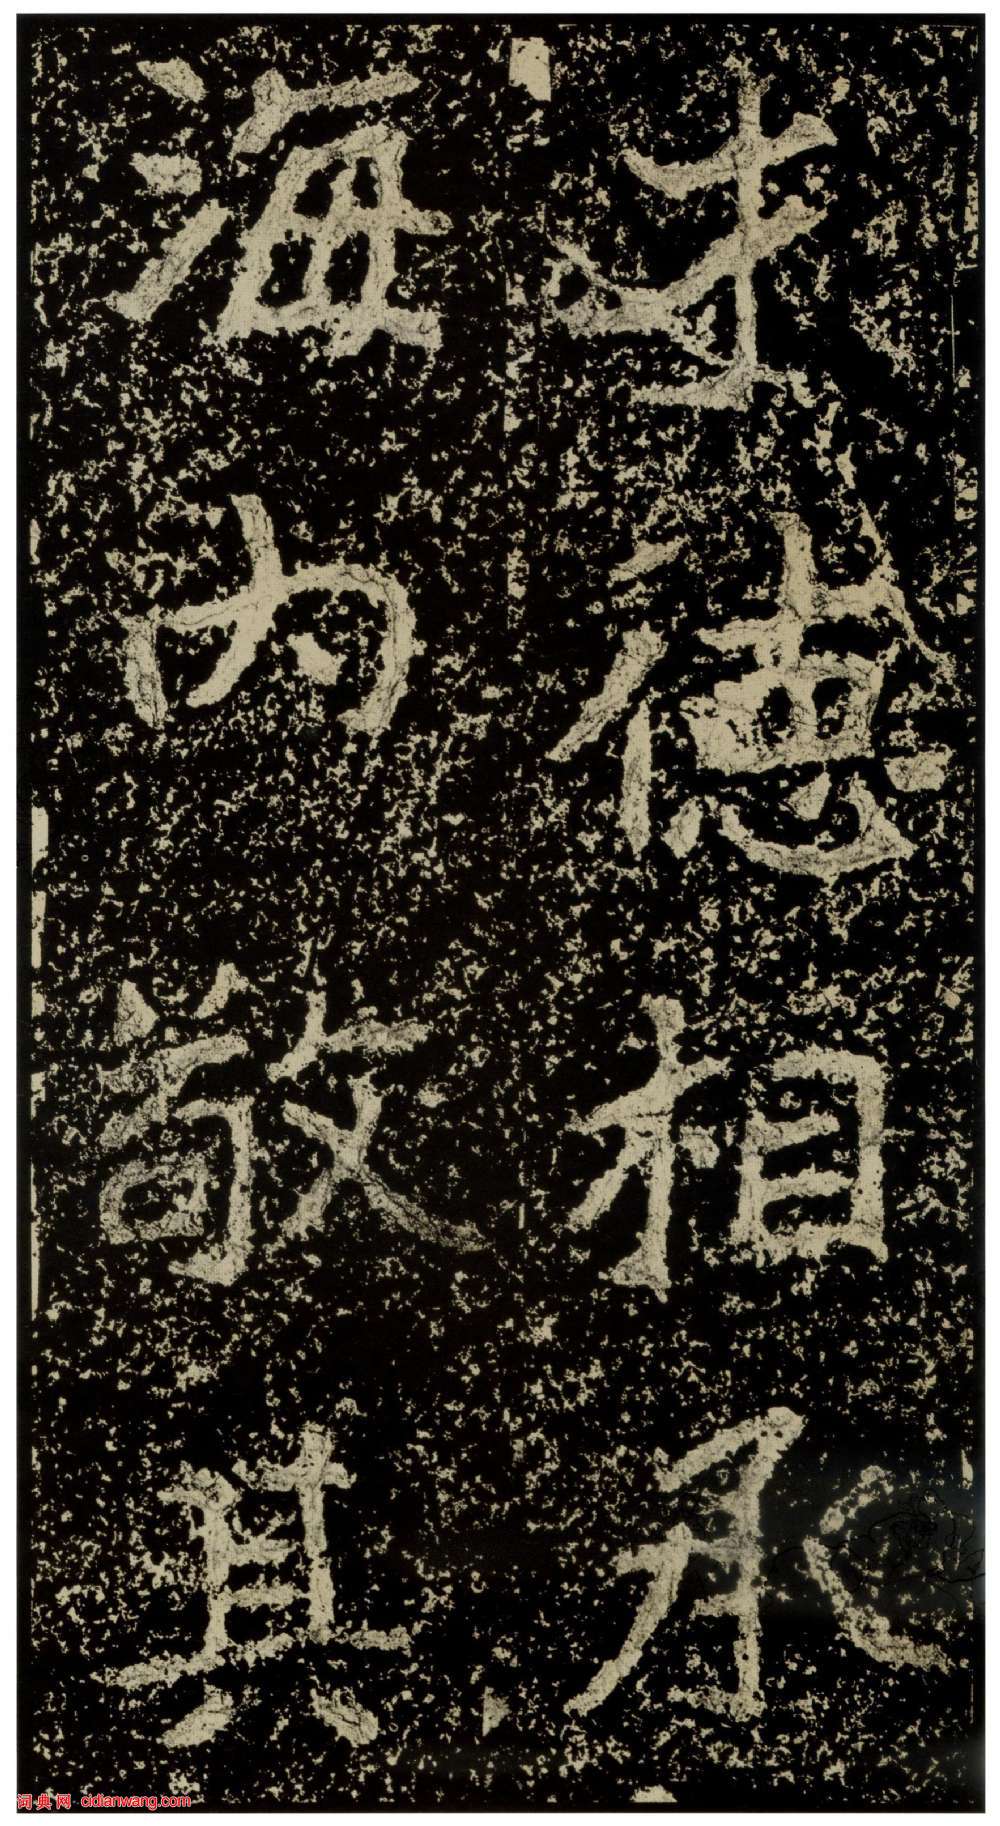 才德相承
海内敬其
词典网 cidianwang.com